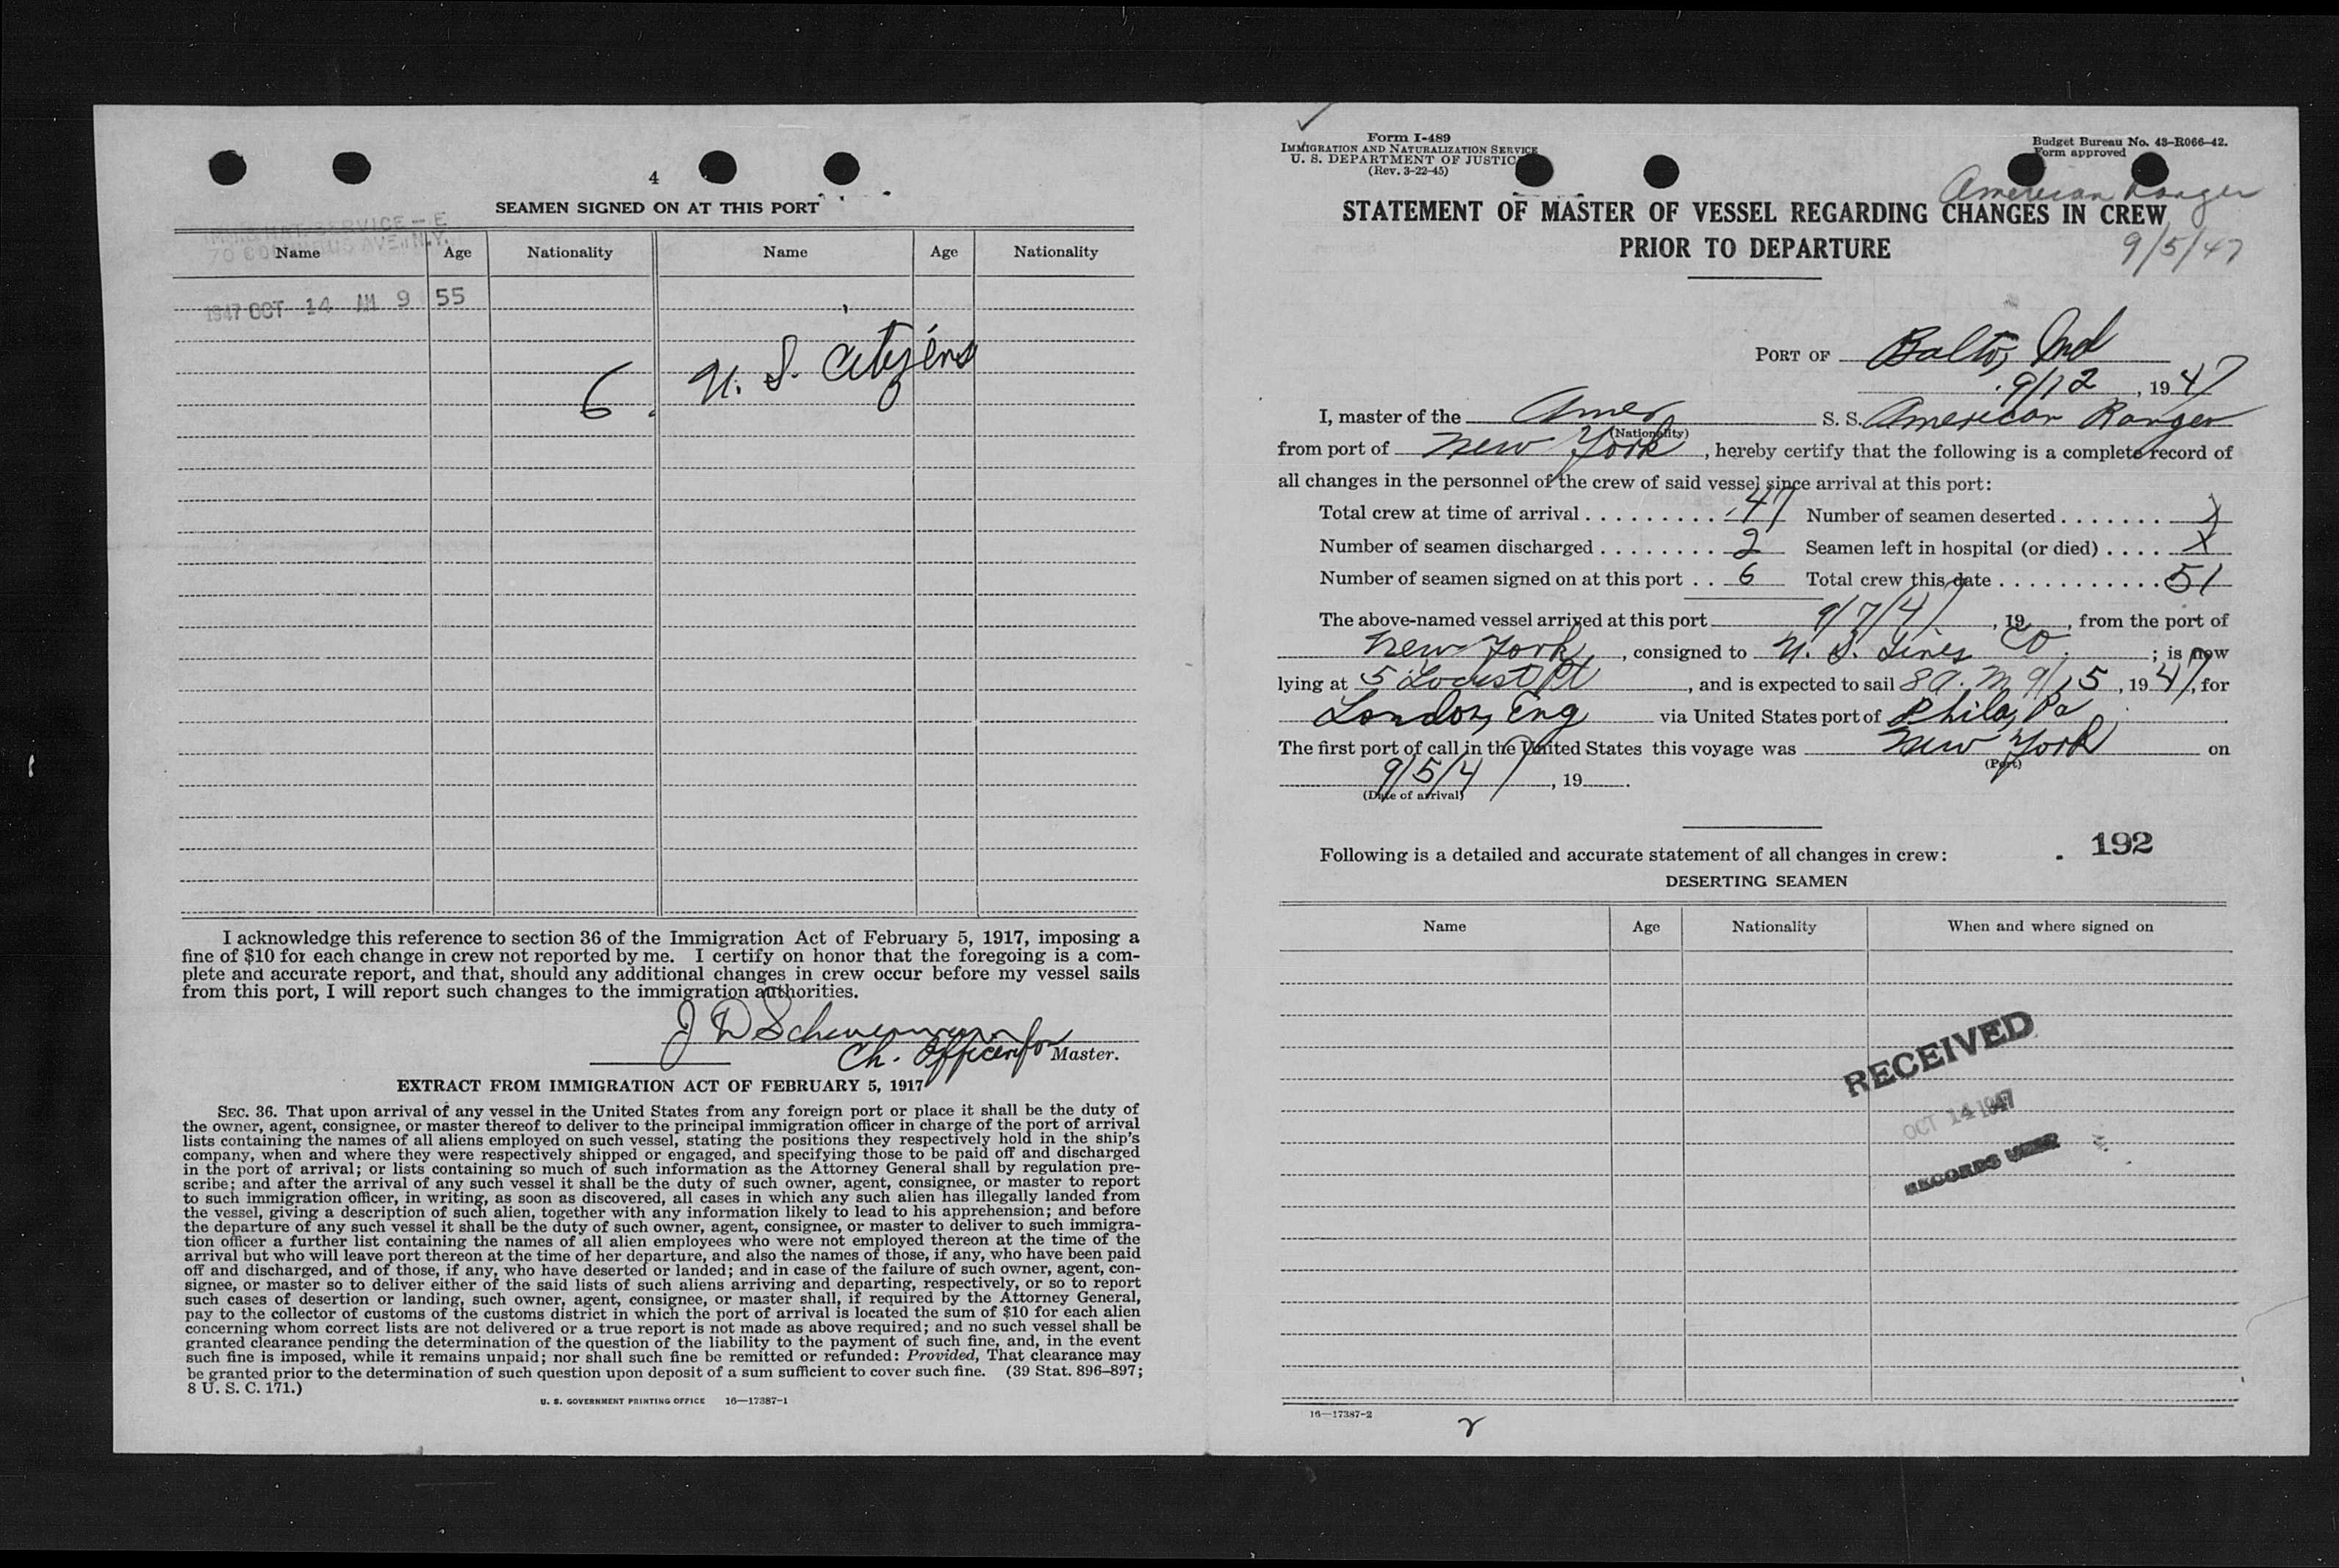 4
SEAMEN SIGNED ON AT THIS PORT
70 COLUMBUS AVE., N.Y.
Name Age Nationality Name Age Nationality
1947 OCT 14 AM 9 55
6 U. S. Citizens
I acknowledge this reference to section 36 of the Immigration Act of February 5, 1917, imposing a
fine of $10 for each change in crew not reported by me. I certify on honor that the foregoing is a com-
plete and accurate report, and that, should any additional changes in crew occur before my vessel sails
from this port, I will report such changes to the immigration authorities.
J D
Ch. Officer for Master.
EXTRACT FROM IMMIGRATION ACT OF FEBRUARY 5, 1917
SEC. 36. That upon arrival of any vessel in the United States from any foreign port or place it shall be the duty of
the owner, agent, consignee, or master thereof to deliver to the principal immigration officer in charge of the port of arrival
lists containing the names of all aliens employed on such vessel, stating the positions they respectively hold in the ship's
company, when and where they were respectively shipped or engaged, and specifying those to be paid off and discharged
in the port of arrival; or lists containing so much of such information as the Attorney General shall by regulation pre-
scribe; and after the arrival of any such vessel it shall be the duty of such owner, agent, consignee, or master to report
to such immigration officer, in writing, as soon as discovered, all cases in which any such alien has illegally landed from
the vessel, giving a description of such alien, together with any information likely to lead to his apprehension; and before
the departure of any such vessel it shall be the duty of such owner, agent, consignee, or master to deliver to such immigra-
tion officer a further list containing the names of all alien employees who were not employed thereon at the time of the
arrival but who will leave port thereon at the time of her departure, and also the names of those, if any, who have been paid
off and discharged, and of those, if any, who have deserted or landed; and in case of the failure of such owner, agent, con-
signee, or master so to deliver either of the said lists of such aliens arriving and departing, respectively, or so to report
such cases of desertion or landing, such owner, agent, consignee, or master shall, if required by the Attorney General,
pay to the collector of customs of the customs district in which the port of arrival is located the sum of $10 for each alien
concerning whom correct lists are not delivered or a true report is not made as above required; and no such vessel shall be
granted clearance pending the determination of the question of the liability to the payment of such fine, and, in the event
such fine is imposed, while it remains unpaid; nor shall such fine be remitted or refunded: Provided, That clearance may
be granted prior to the determination of such question upon deposit of a sum sufficient to cover such fine. (39 Stat. 896–897;
8 U. S. C. 171.)
U. S. GOVERNMENT PRINTING OFFICE 16—17387-1
Form I-489
IMMIGRATION AND NATURALIZATION SERVICE
U. S. DEPARTMENT OF JUSTICE
(Rev. 3-22-45)
Budget Bureau No. 43–R066–42.
Form approved
American Ranger
STATEMENT OF MASTER OF VESSEL REGARDING CHANGES IN CREW
PRIOR TO DEPARTURE
9/5/47
PORT OF Balto, Md
9/12, 1947
I, master of the Amer S. S. American Ranger
(Nationality)
from port of New York, hereby certify that the following is a complete record of
all changes in the personnel of the crew of said vessel since arrival at this port:
Total crew at time of arrival . . . . . . . . . 47 Number of seamen deserted . . . . . . . X
Number of seamen discharged . . . . . . . . 2 Seamen left in hospital (or died) . . . . X
Number of seamen signed on at this port . . 6 Total crew this date . . . . . . . . . . . . 51
The above-named vessel arrived at this port 9/7/47, 19 , from the port of
New York, consigned to U. S. Lines Co; is now
lying at 5 Locust Pt, and is expected to sail 8 A. M 9/15, 1947, for
London, Eng via United States port of Phila, Pa
The first port of call in the United States this voyage was New York on
(Port)
9/5/47, 19 .
(Date of arrival)
192
Following is a detailed and accurate statement of all changes in crew:
DESERTING SEAMEN
Name Age Nationality When and where signed on
RECEIVED
OCT 14 1947
RECORDS
16—17387-2